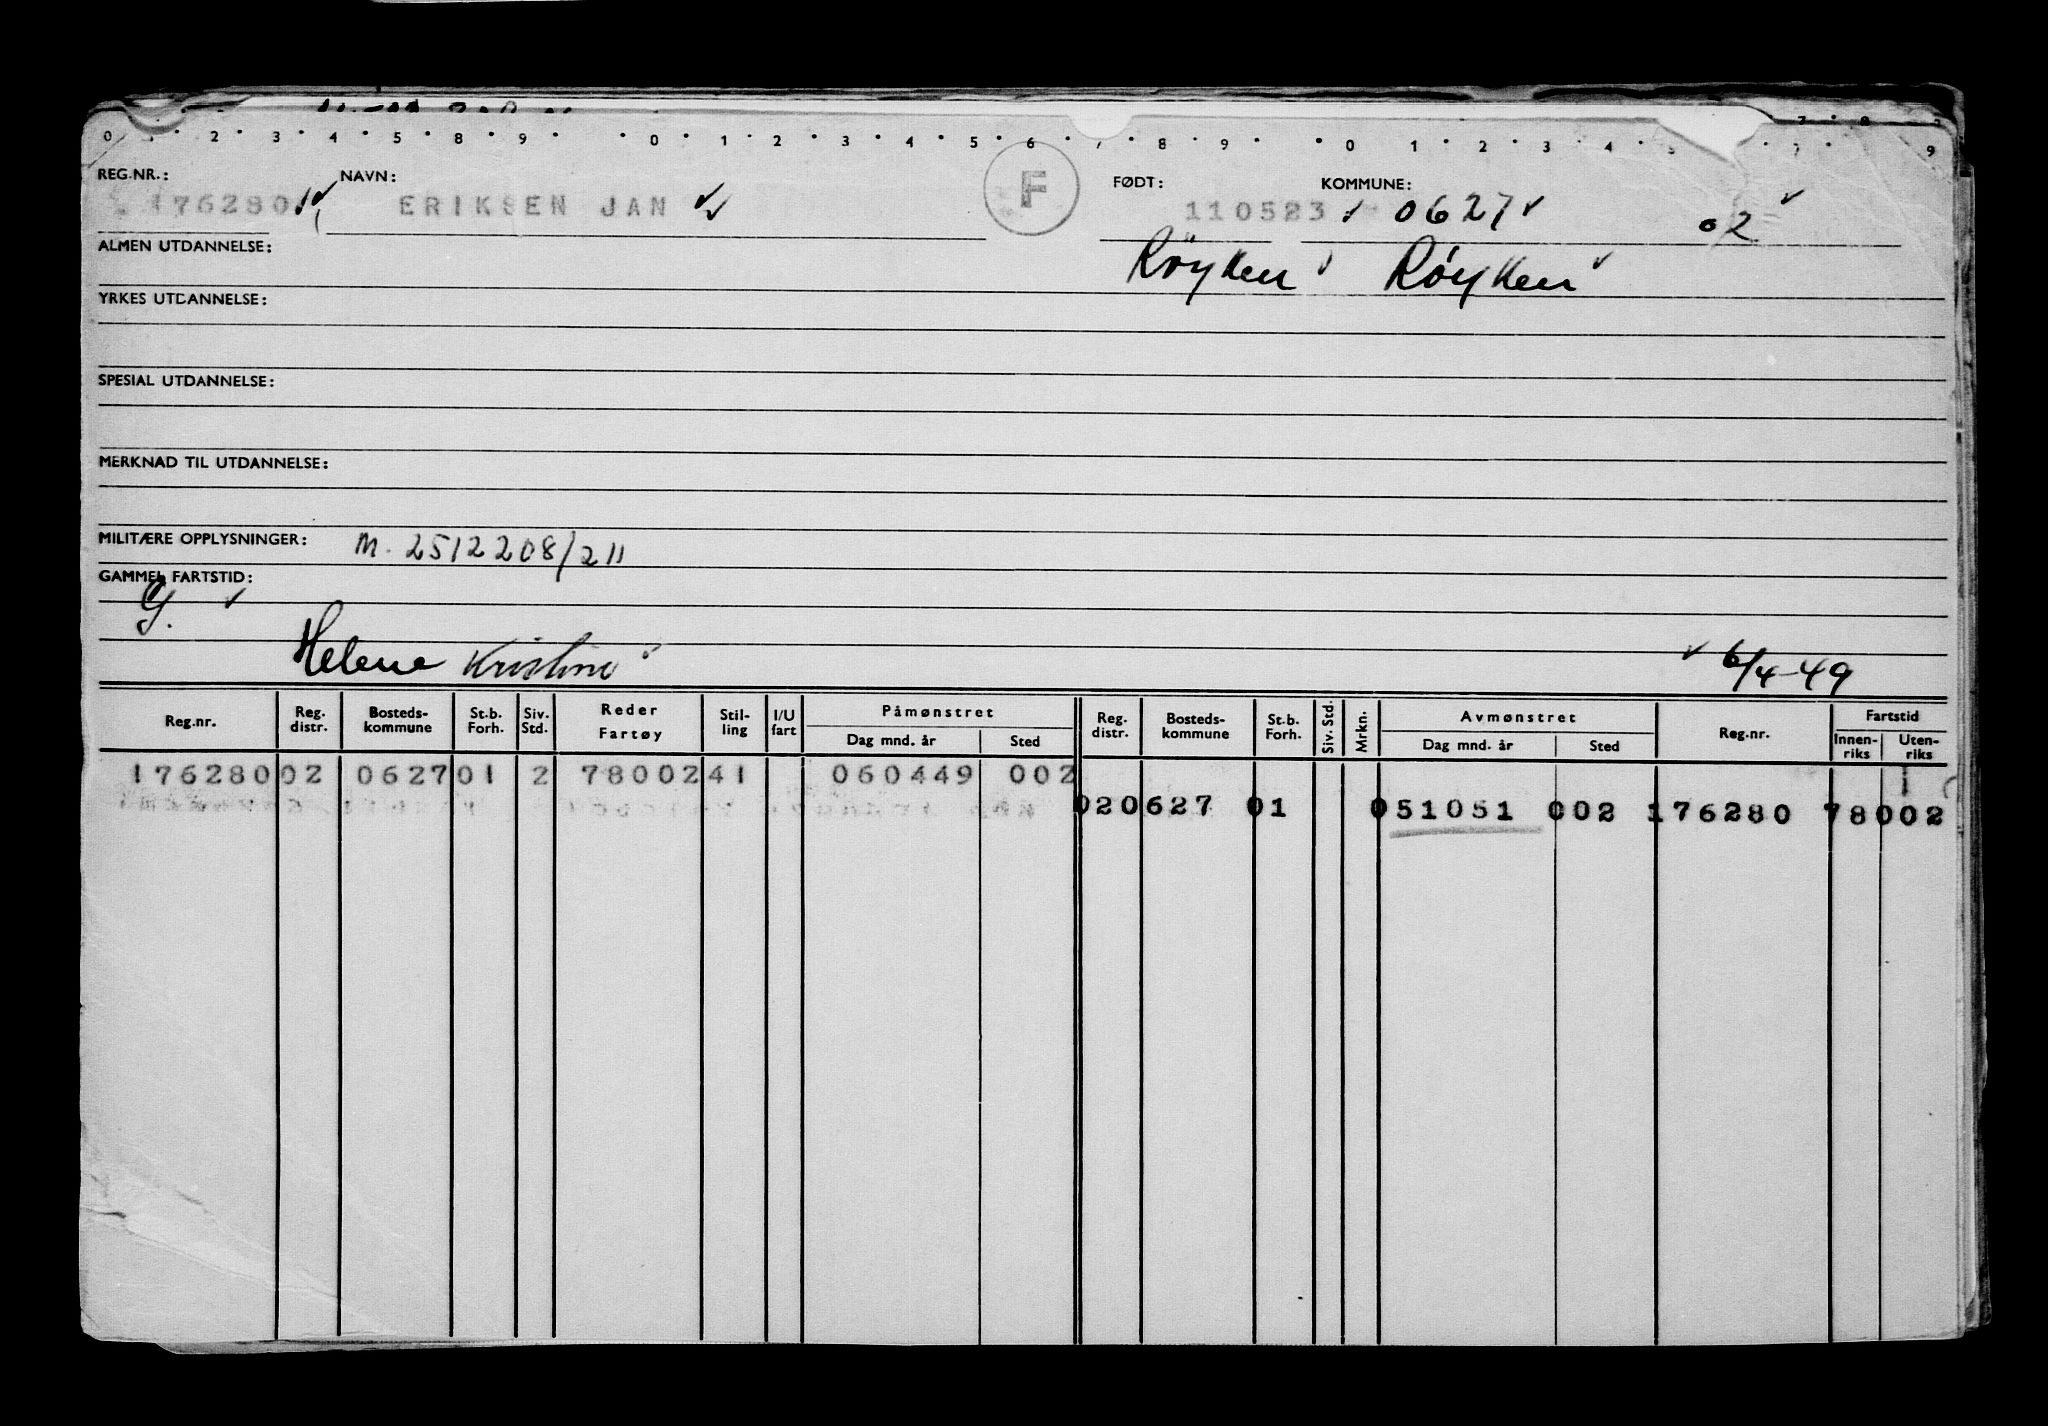 0 1 2 3 4 5 8 9 0 1 2 3 4 5 6 7 8 9 0 1 2 3 4 5 7 9
REG.NR.: NAVN: F FØDT: KOMMUNE:
176280 ERIKSEN JAN 110523 0627 02
ALMEN UTDANNELSE: Röyken Røyken
YRKES UTDANNELSE:
SPESIAL UTDANNELSE:
MERKNAD TIL UTDANNELSE:
MILITÆRE OPPLYSNINGER: M. 2512208/211
GAMMEL FARTSTID:
G.
Helene Kristine 6/4-49
Reg.nr. Reg. distr. Bosteds-kommune St.b. Forh. Siv. Std. Reder Fartøy Stil-ling I/U fart Påmønstret Dag mnd. år Sted Reg. distr. Bosteds-kommune St.b. Forh. Siv. Std. Mrkn. Avmønstret Dag mnd. år Sted Reg.nr. Fartstid Innen-riks Uten-riks
176280 02 0627 01 2 78002 41 060449 002
02 0627 01 051051 002 176280 78002